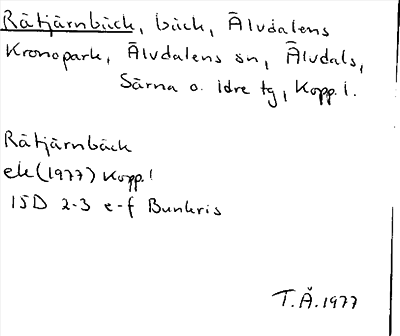 Råtjärnbäck, bäck, Älvdalens
Kronopark, Älvdalens sn, Älvdals,
Särna o. Idre tg, Kopp. l.
Råtjärnbäck
ek (1977) Kopp. l
15D 2-3 e-f Bunkris
T.Å. 1977